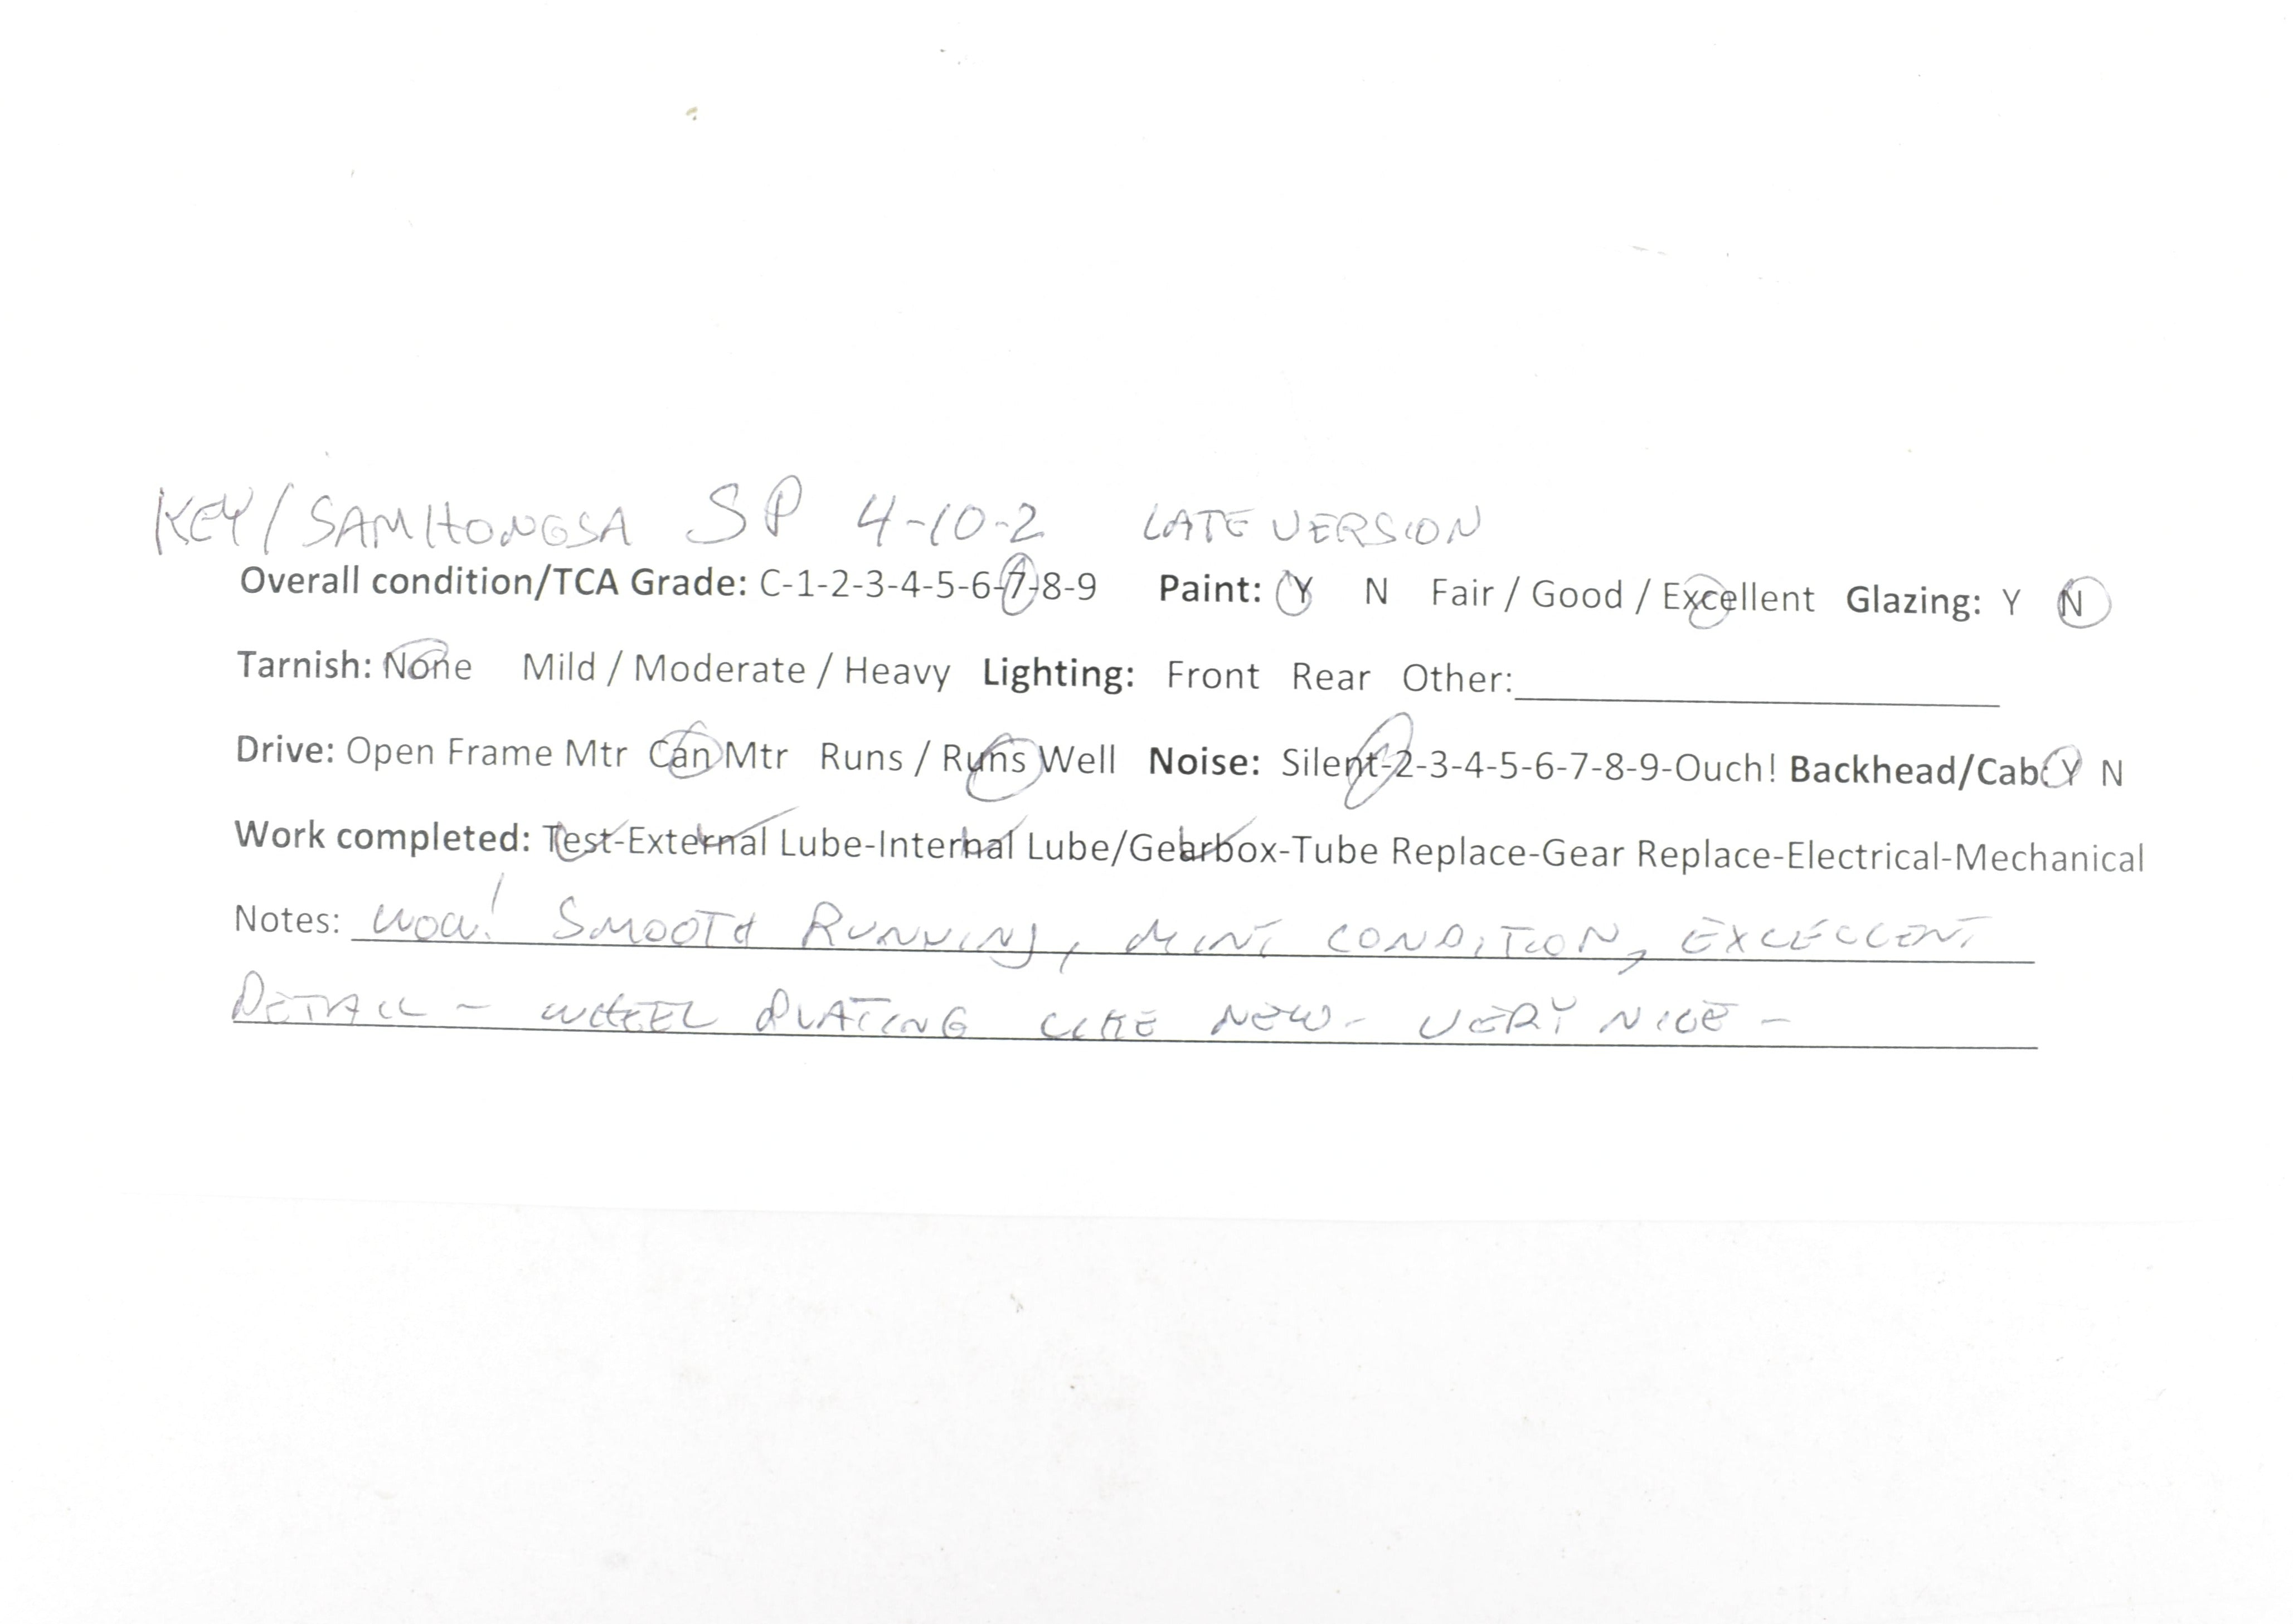 KEY/SAMHONGSA SP 4-10-2 LATE VERSION
Overall condition/TCA Grade: C-1-2-3-4-5-6-7-8-9 Paint: Y N Fair / Good / Excellent Glazing: Y N
Tarnish: None Mild / Moderate / Heavy Lighting: Front Rear Other:
Drive: Open Frame Mtr Can Mtr Runs / Runs Well Noise: Silent-2-3-4-5-6-7-8-9-Ouch! Backhead/Cab: Y N
Work completed: Test-External Lube-Internal Lube/Gearbox-Tube Replace-Gear Replace-Electrical-Mechanical
Notes: WOW! SMOOTH RUNNING, MINT CONDITION, EXCELLENT
DETAIL - WHEEL PLATING LIKE NEW - VERY NICE -